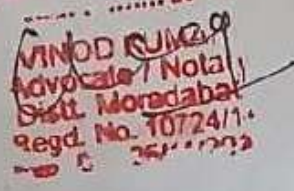 VINOD KUMAR
Advocate / Notary
Distt. Moradabad
Regd. No. 10724/1